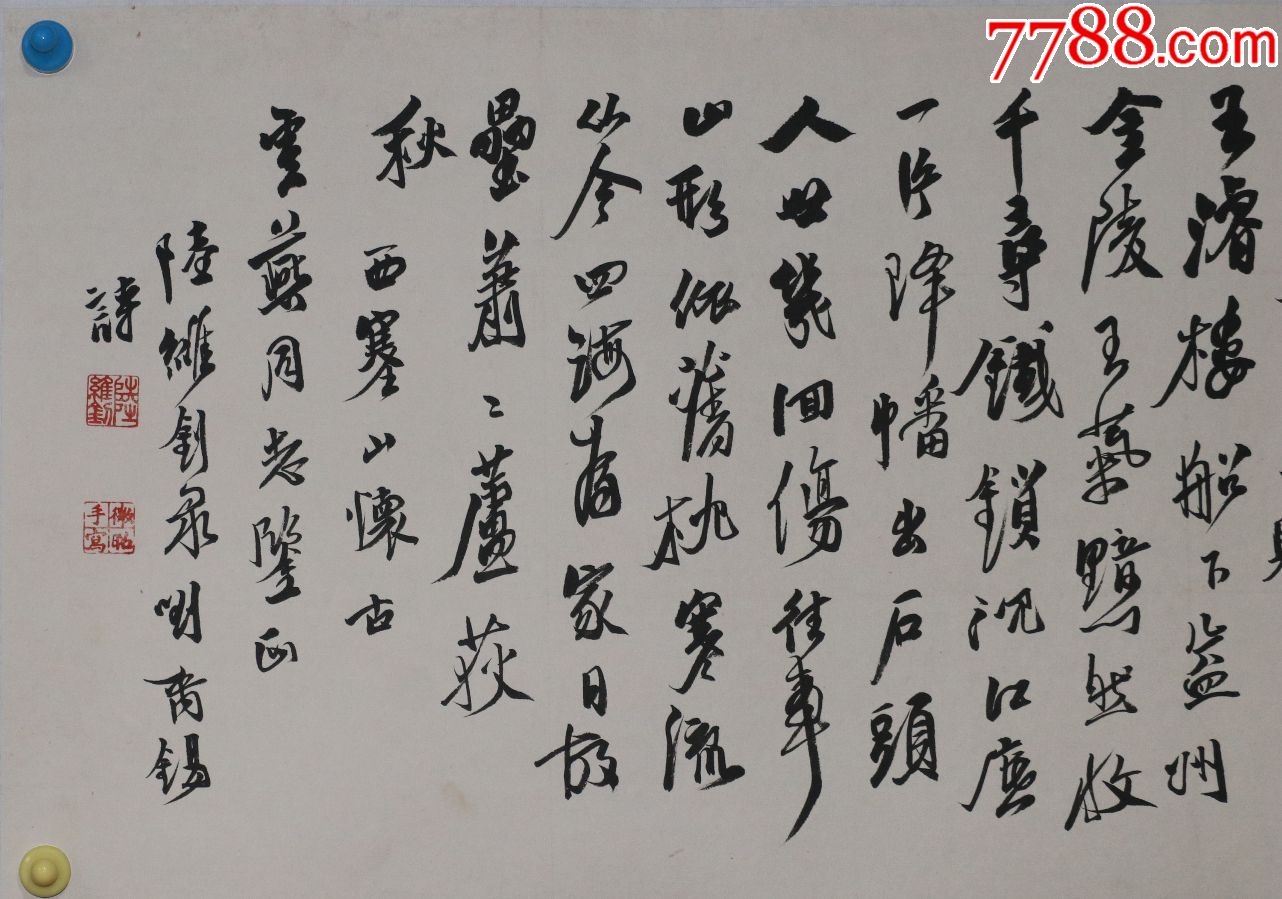 7788.com
王濬樓船下益州
金陵王氣黯然收
千尋鐵鎖沉江底
一片降幡出石頭
人世幾回傷往事
山形依舊枕寒流
从今四海為家日故
壘蕭〻蘆荻
秋 西塞山懷古
雲燕同志鑒正
陸維釗录劉禹錫
詩
陸維釗
微昭手寫